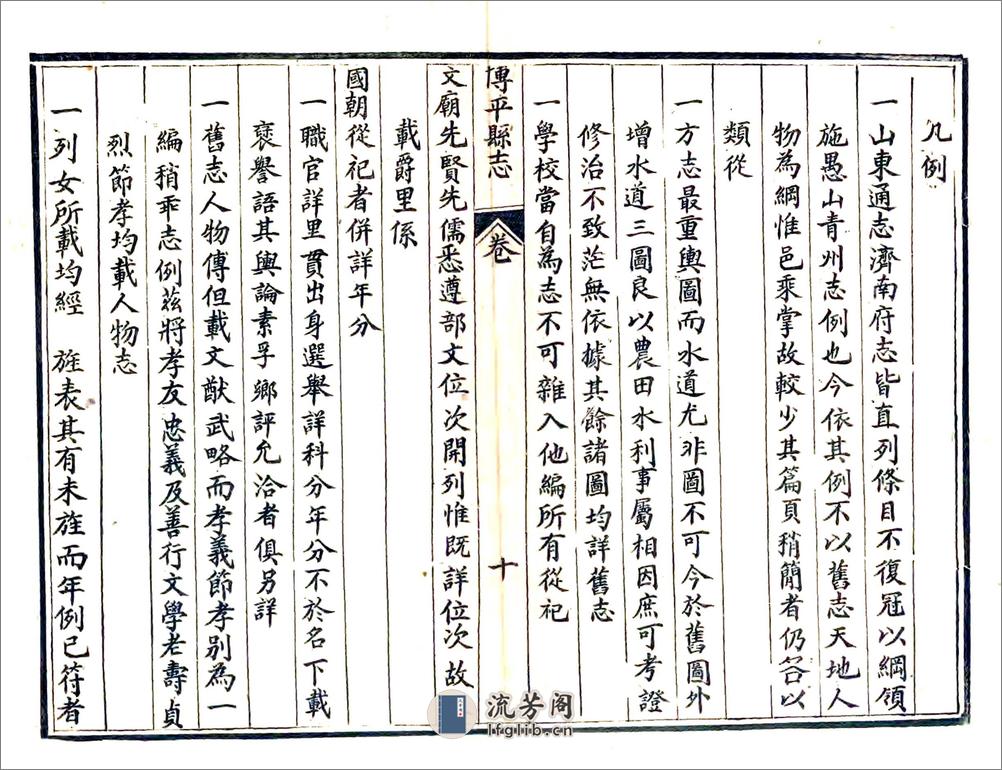 凡例
一山東通志濟南府志皆直列條目不復冠以綱領
施愚山青州志例也今依其例不以舊志天地人
物為綱惟邑乘掌故較少其篇頁稍簡者仍各以
類從
一方志最重輿圖而水道尤非圖不可今於舊圖外
增水道三圖良以農田水利事屬相因庶可考證
修治不致茫無依據其餘諸圖均詳舊志
一學校當自為志不可雜入他編所有從祀
博平縣志
卷
十
文廟先賢先儒悉遵部文位次開列惟既詳位次故
載爵里係
國朝從祀者併詳年分
一職官詳里貫出身選舉詳科分年分不於名下載
褒譽語其輿論素孚鄉評允洽者俱另詳
一舊志人物傳但載文猷武略而孝義節孝別為一
編稍乖志例茲將孝友忠義及善行文學老壽貞
烈節孝均載人物志
一列女所載均經 旌表其有未旌而年例已符者
流芳阁
lfglib.cn